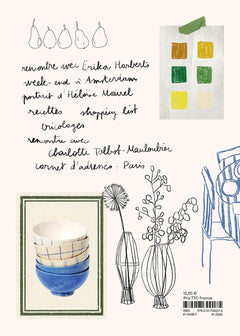 rencontre avec Erika Harberts
week-end à Amsterdam
portrait d'Héloïse Maurel
recettes shopping list
bricolages
rencontre avec
Charlotte Talbot-Mauloubier
carnet d'adresses : Paris
12,90 €
Prix TTC France